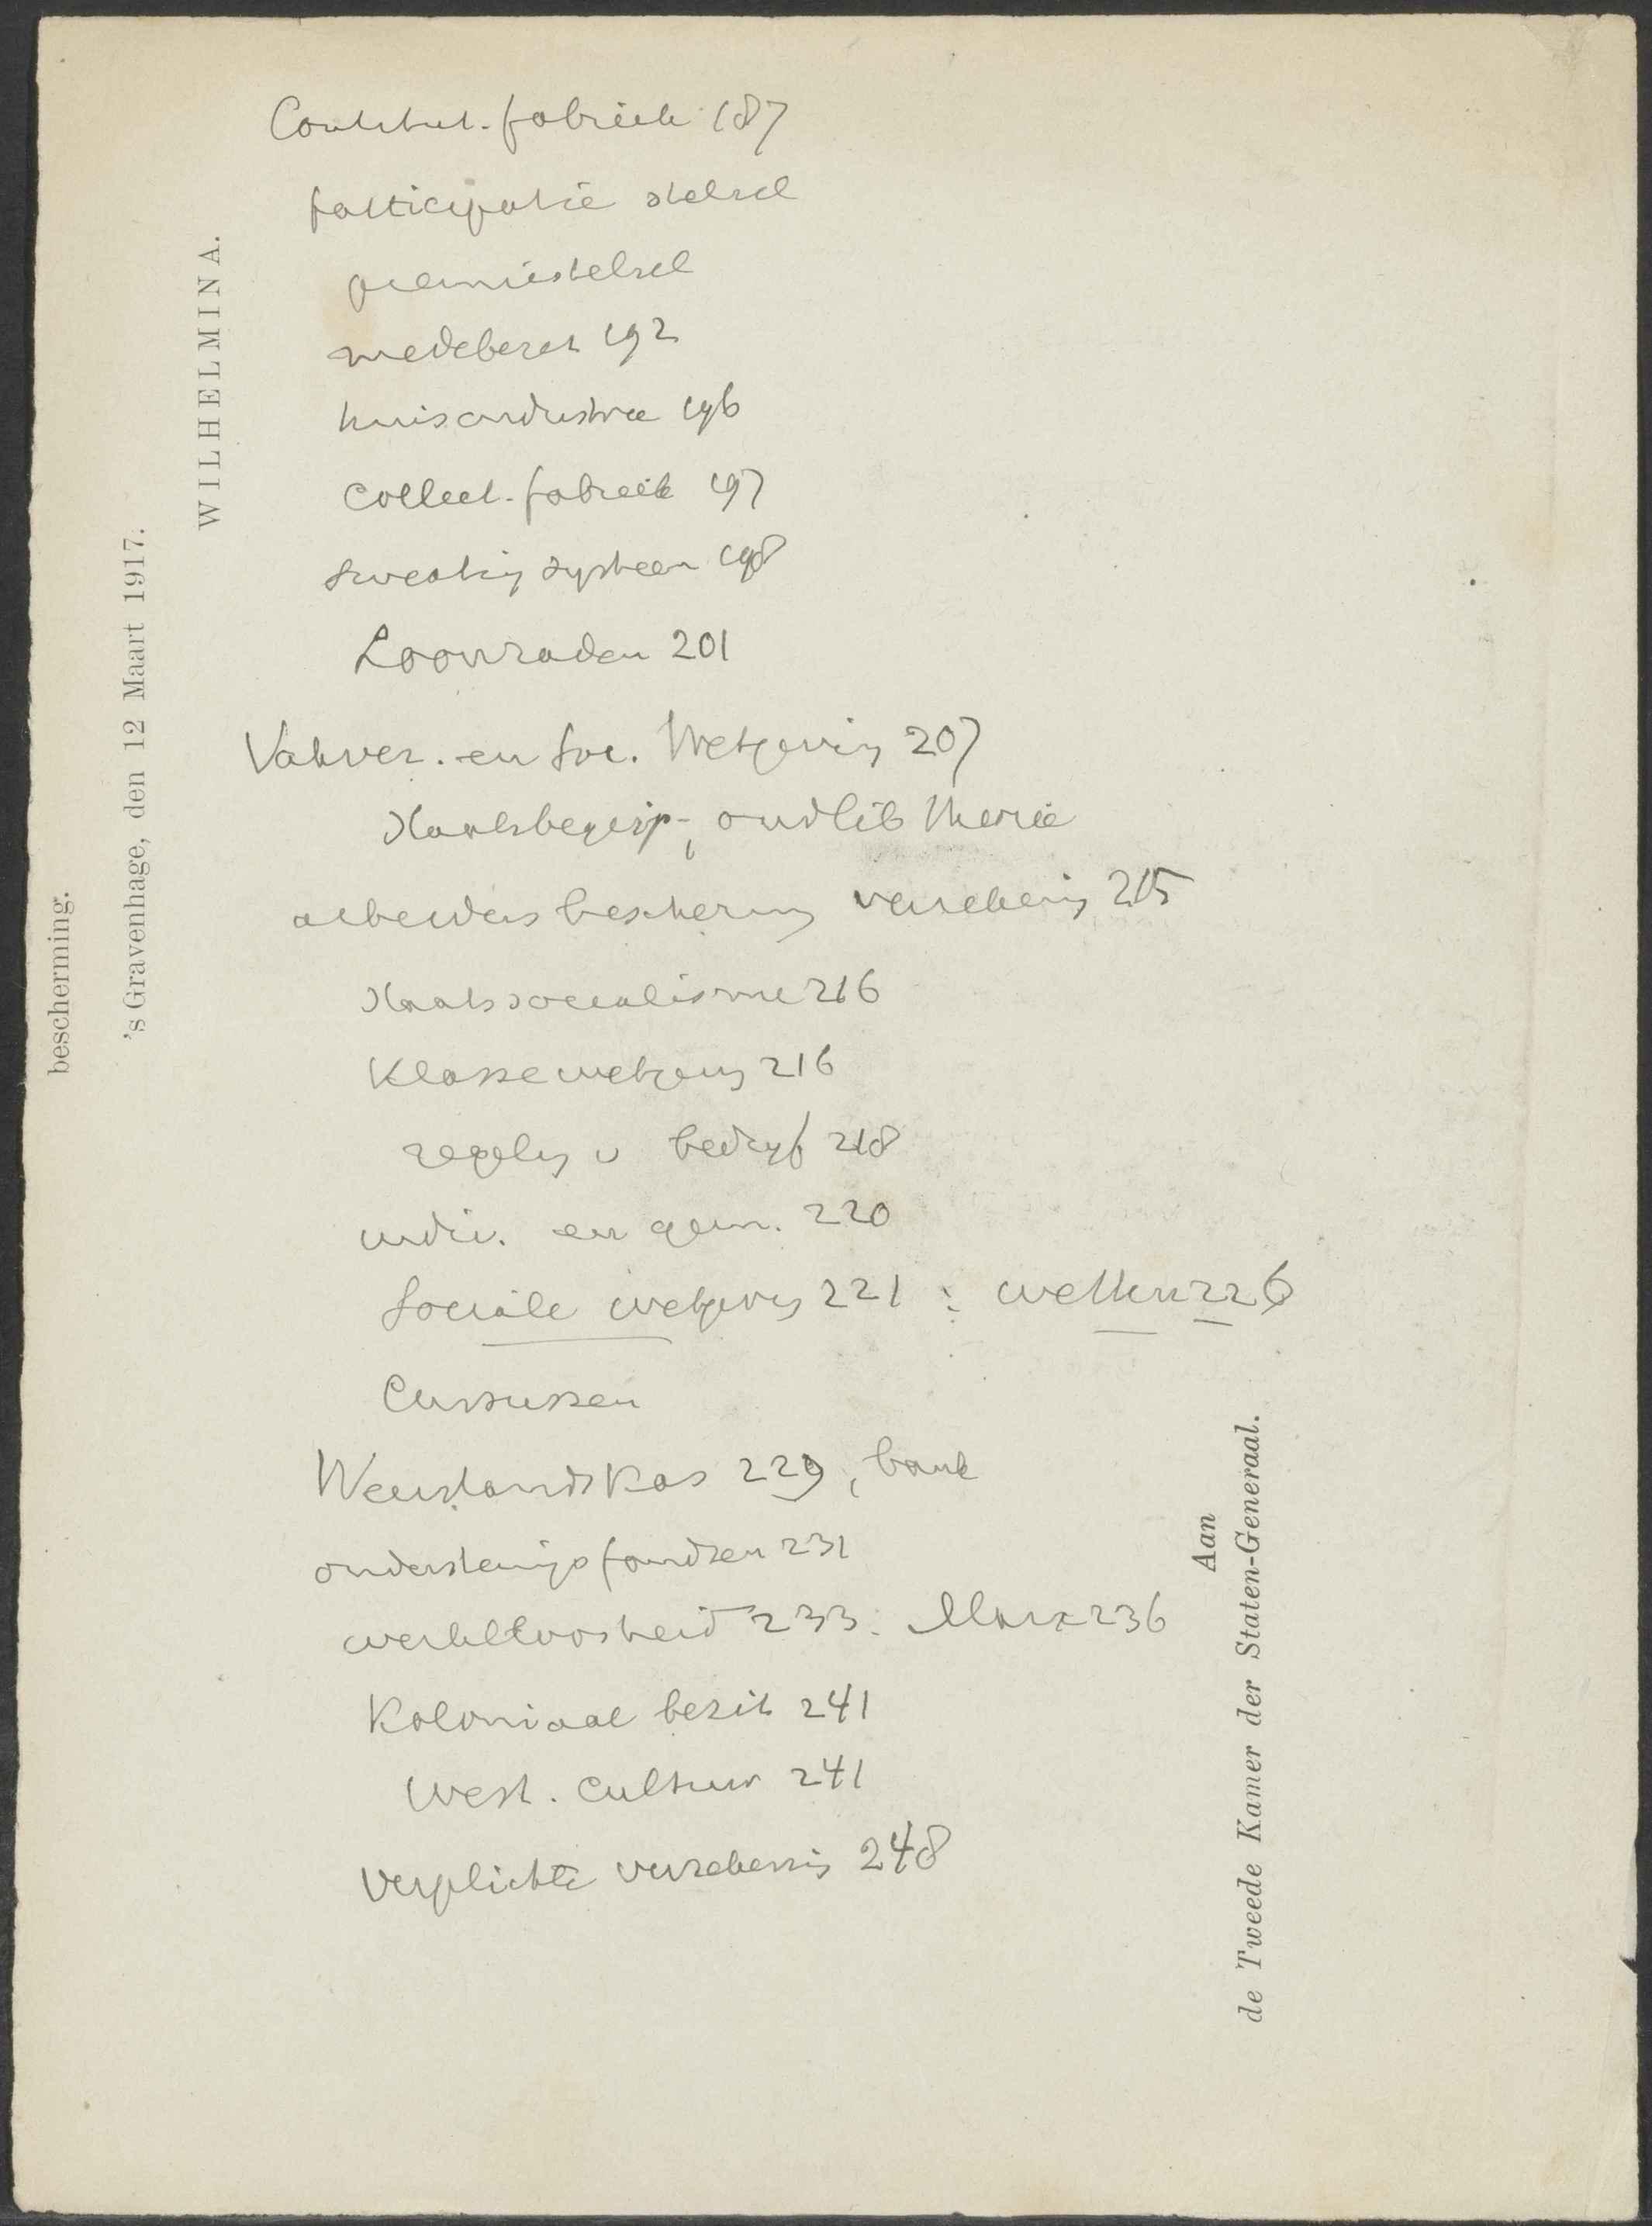 Constitut. fabriek 187
participatie stelsel
premiestelsel
medebezit 192
huisindustrie 196
Collect. fabriek 197
sweating systeem 198
Loonraden 201
Vakver. en Soc. Wetgeving 207
Staatsbegrip, oudlib theorie
arbeidersbescherming verzekering 215
Staatssocialisme 216
Klassewetgeving 216
regeling v bedryf 218
indiv. en gem. 220
Sociale wetgeving 221 : wetten 226
Cursussen
Weerstandskas 229, bank
ondersteuningsfondsen 231
werkeloosheid 233. Marx 236
Koloniaal bezit 241
West. Cultuur 241
Verplichte verzekering 248
bescherming.
's Gravenhage, den 12 Maart 1917.
WILHELMINA.
Aan
de Tweede Kamer der Staten-Generaal.